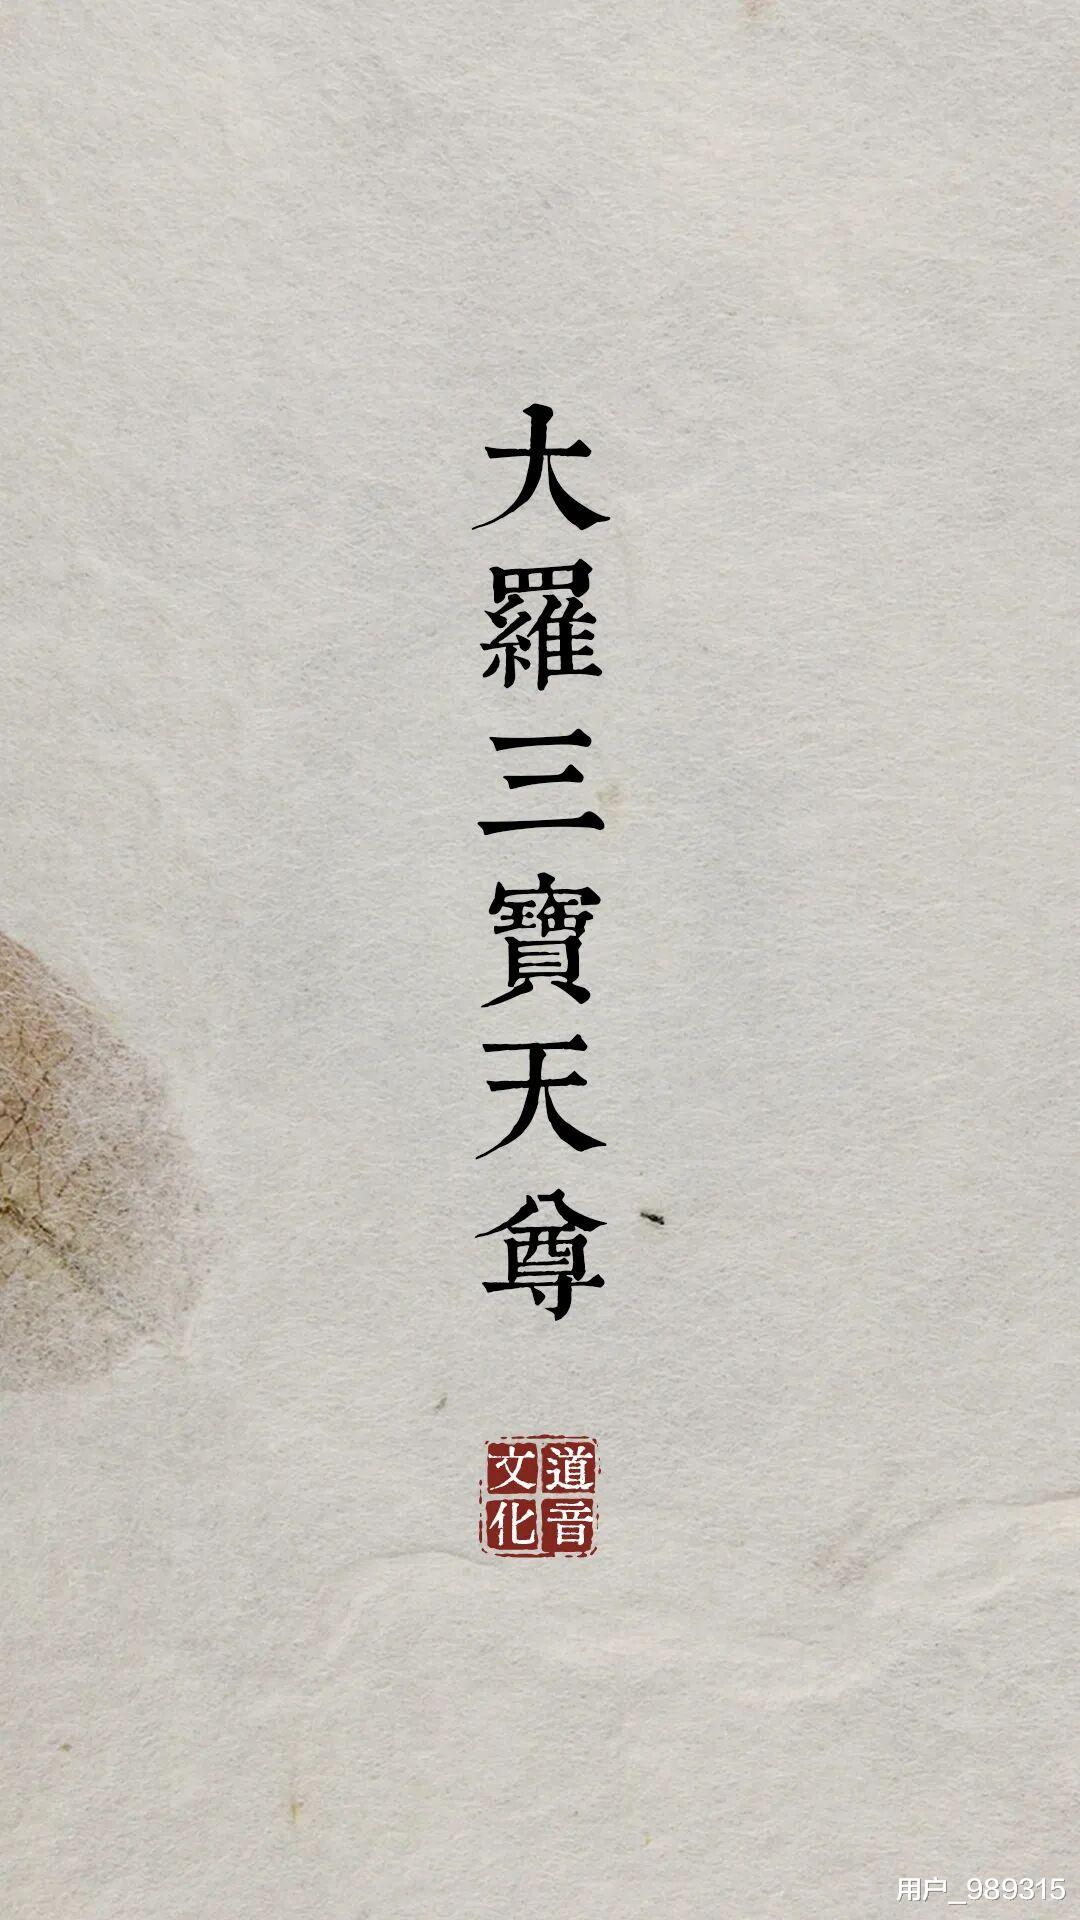 大羅三寶天尊
道音
文化
用户_989315